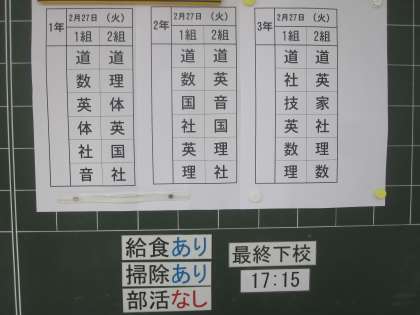 1年 2月27日 (火)
1組 2組
道 道
数 理
英 体
体 英
社 国
音 社
2年 2月27日 (火)
1組 2組
道 道
数 英
国 音
社 国
英 理
理 社
3年 2月27日 (火)
1組 2組
道 道
社 英
技 家
英 社
数 理
理 数
給食あり
掃除あり
部活なし
最終下校
17:15